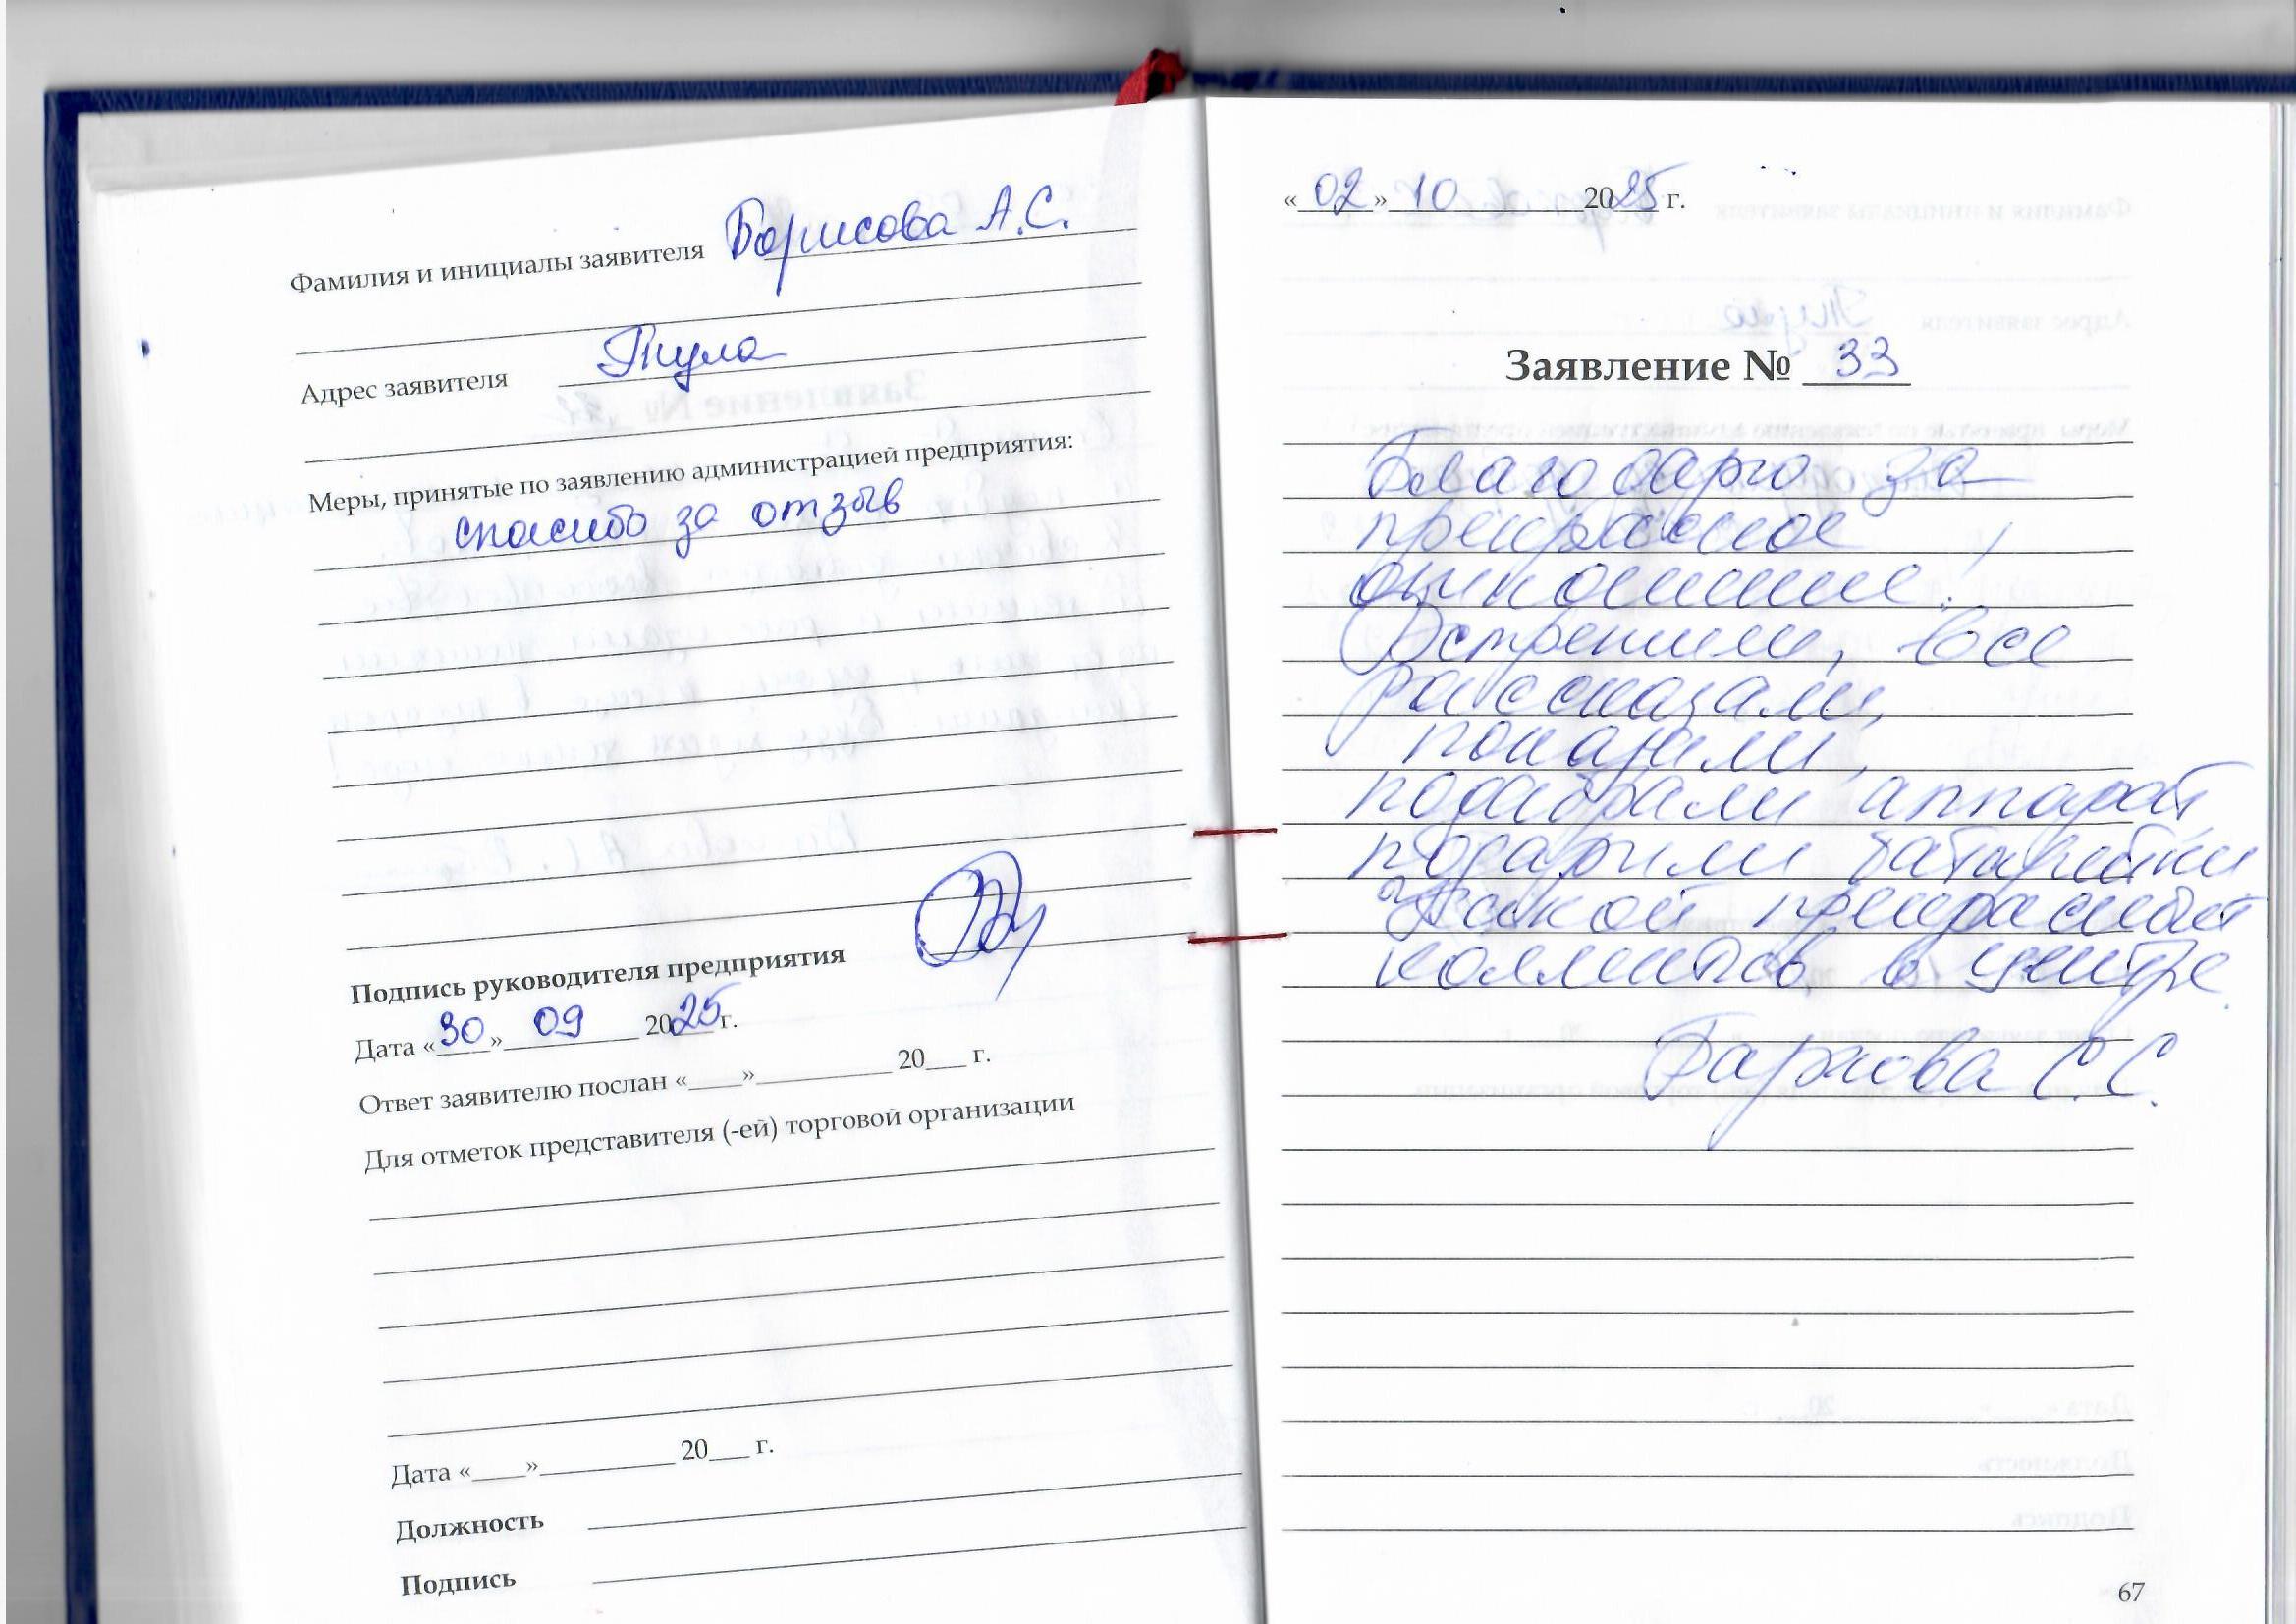 Фамилия и инициалы заявителя Борисова А.С.
Адрес заявителя Тула
Меры, принятые по заявлению администрацией предприятия:
спасибо за отзыв
Подпись руководителя предприятия
Дата «30» 09 2025 г.
Ответ заявителю послан «____»__________ 20___ г.
Для отметок представителя (-ей) торговой организации
Дата «____»__________ 20___ г.
Должность
Подпись
«02» 10 2025 г.
Заявление № 33
Благодарю за
прекрасное
отношение!
Встретили, все
рассказали,
показали,
подобрали аппарат
подарили батарейки
Такой прекрасный
коллектив в центре
С.С.
67